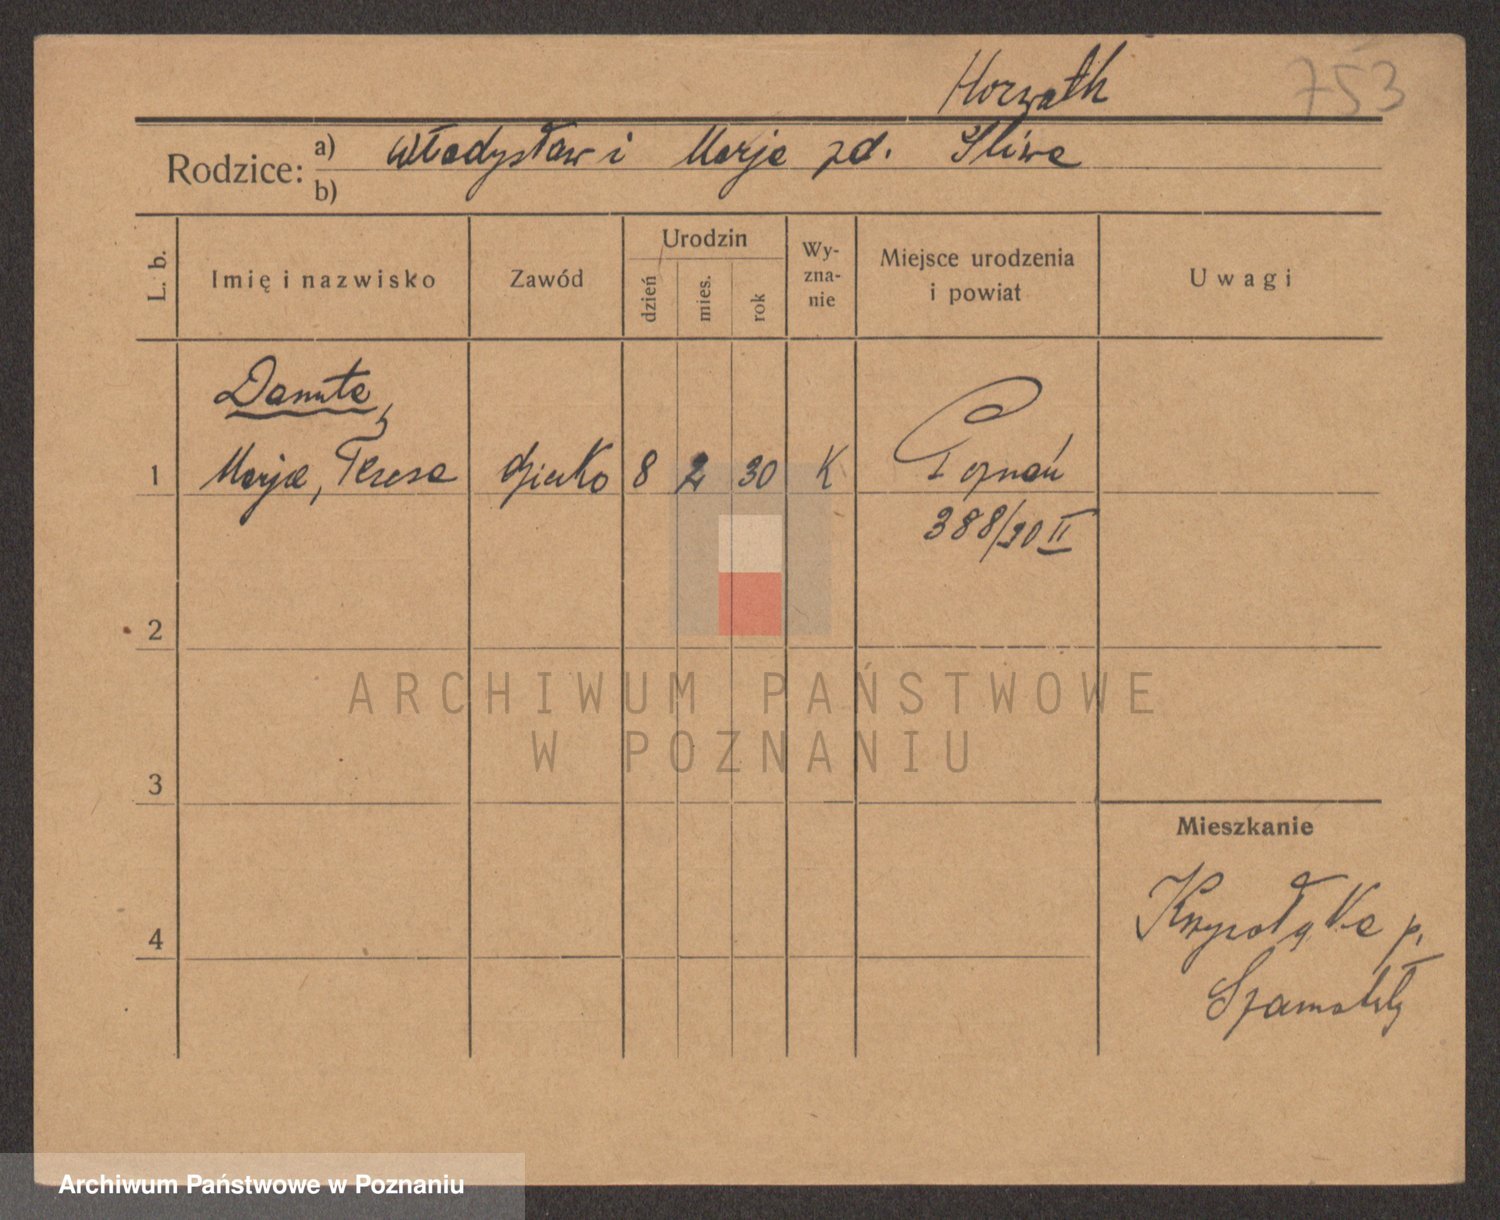 Horwath 753
Rodzice: a) Władysław i Marja zd. Śliwa
b)
L. b.
Imię i nazwisko
Zawód
Urodzin
dzień
mies.
rok
Wy-
zna-
nie
Miejsce urodzenia
i powiat
Uwagi
Danuta,
1 Marja, Teresa dziecko 8 2 30 K Poznań
388/30 II
2
ARCHIWUM PAŃSTWOWE
W POZNANIU
3
Mieszkanie
4
p.
Szamotuły
Archiwum Państwowe w Poznaniu